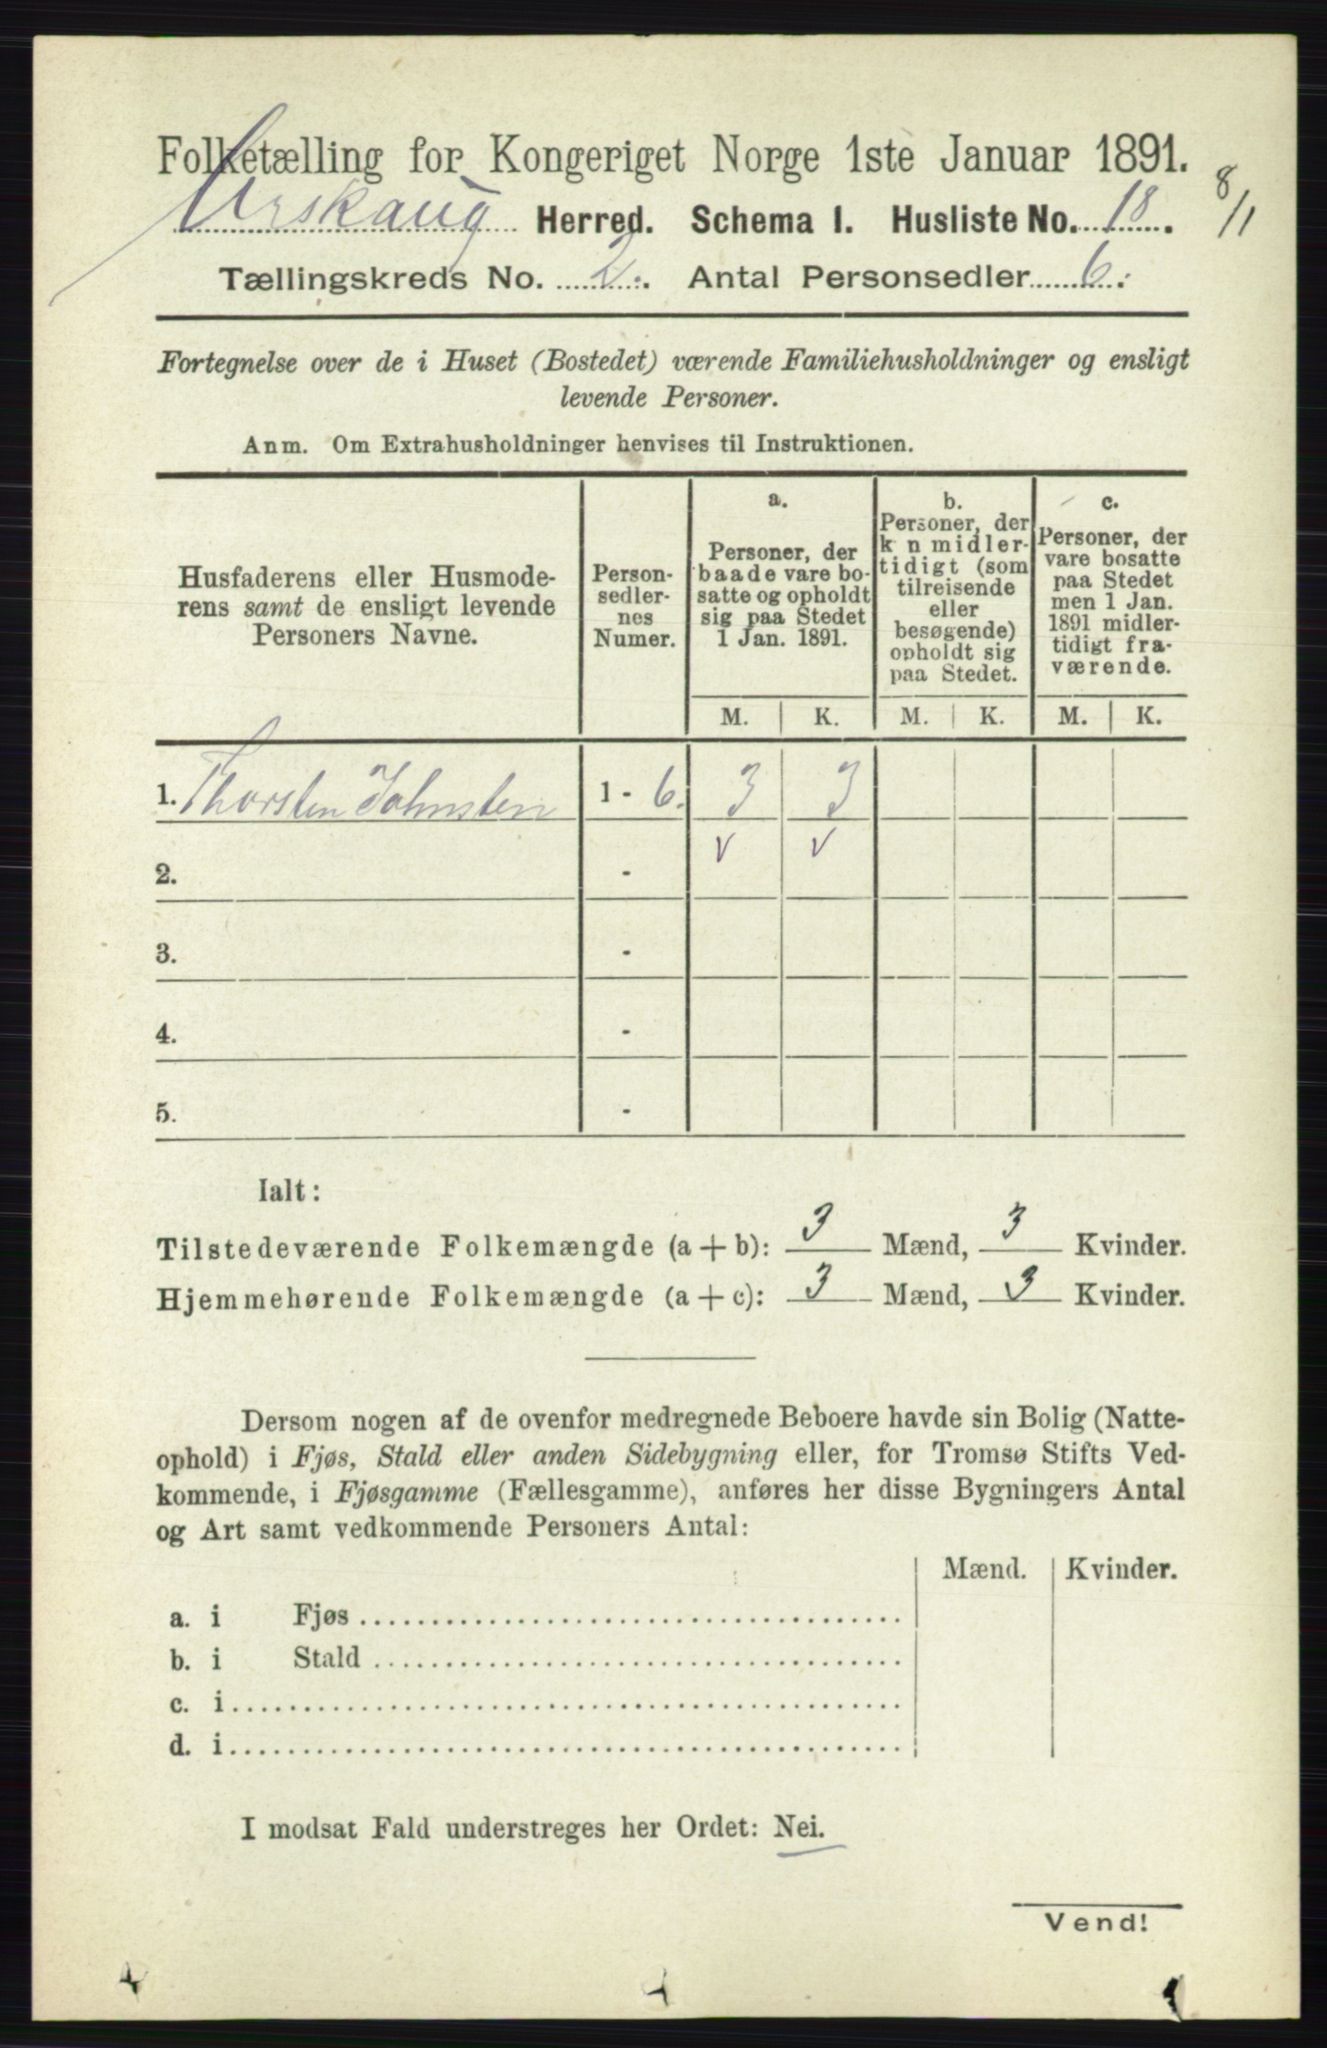 Folketælling for Kongeriget Norge 1ste Januar 1891.
Urskaug Herred. Schema 1. Husliste No. 18.
8/1
Tællingskreds No. 2. Antal Personsedler 6.
Fortegnelse over de i Huset (Bostedet) værende Familiehusholdninger og ensligt
levende Personer.
Anm. Om Extrahusholdninger henvises til Instruktionen.
Husfaderens eller Husmode-
rens samt de ensligt levende
Personers Navne.
Person-
sedler-
nes
Numer.
a.
Personer, der
baade vare bo-
satte og opholdt
sig paa Stedet
1 Jan. 1891.
b.
Personer, der
k n midler-
tidigt (som
tilreisende
eller
besøgende)
opholdt sig
paa Stedet.
c.
Personer, der
vare bosatte
paa Stedet
men 1 Jan.
1891 midler-
tidigt fra-
værende.
M. K. M. K. M. K.
1. Thorsten Johnsten 1 - 6. 3 3
v v
2. -
3. -
4. -
5. -
Ialt:
Tilstedeværende Folkemængde (a + b): 3 Mænd, 3 Kvinder.
Hjemmehørende Folkemængde (a + c): 3 Mænd, 3 Kvinder.
Dersom nogen af de ovenfor medregnede Beboere havde sin Bolig (Natte-
ophold) i Fjøs, Stald eller anden Sidebygning eller, for Tromsø Stifts Ved-
kommende, i Fjøsgamme (Fællesgamme), anføres her disse Bygningers Antal
og Art samt vedkommende Personers Antal:
Mænd. Kvinder.
a. i Fjøs
b. i Stald
c. i
d. i
I modsat Fald understreges her Ordet: Nei.
Vend!